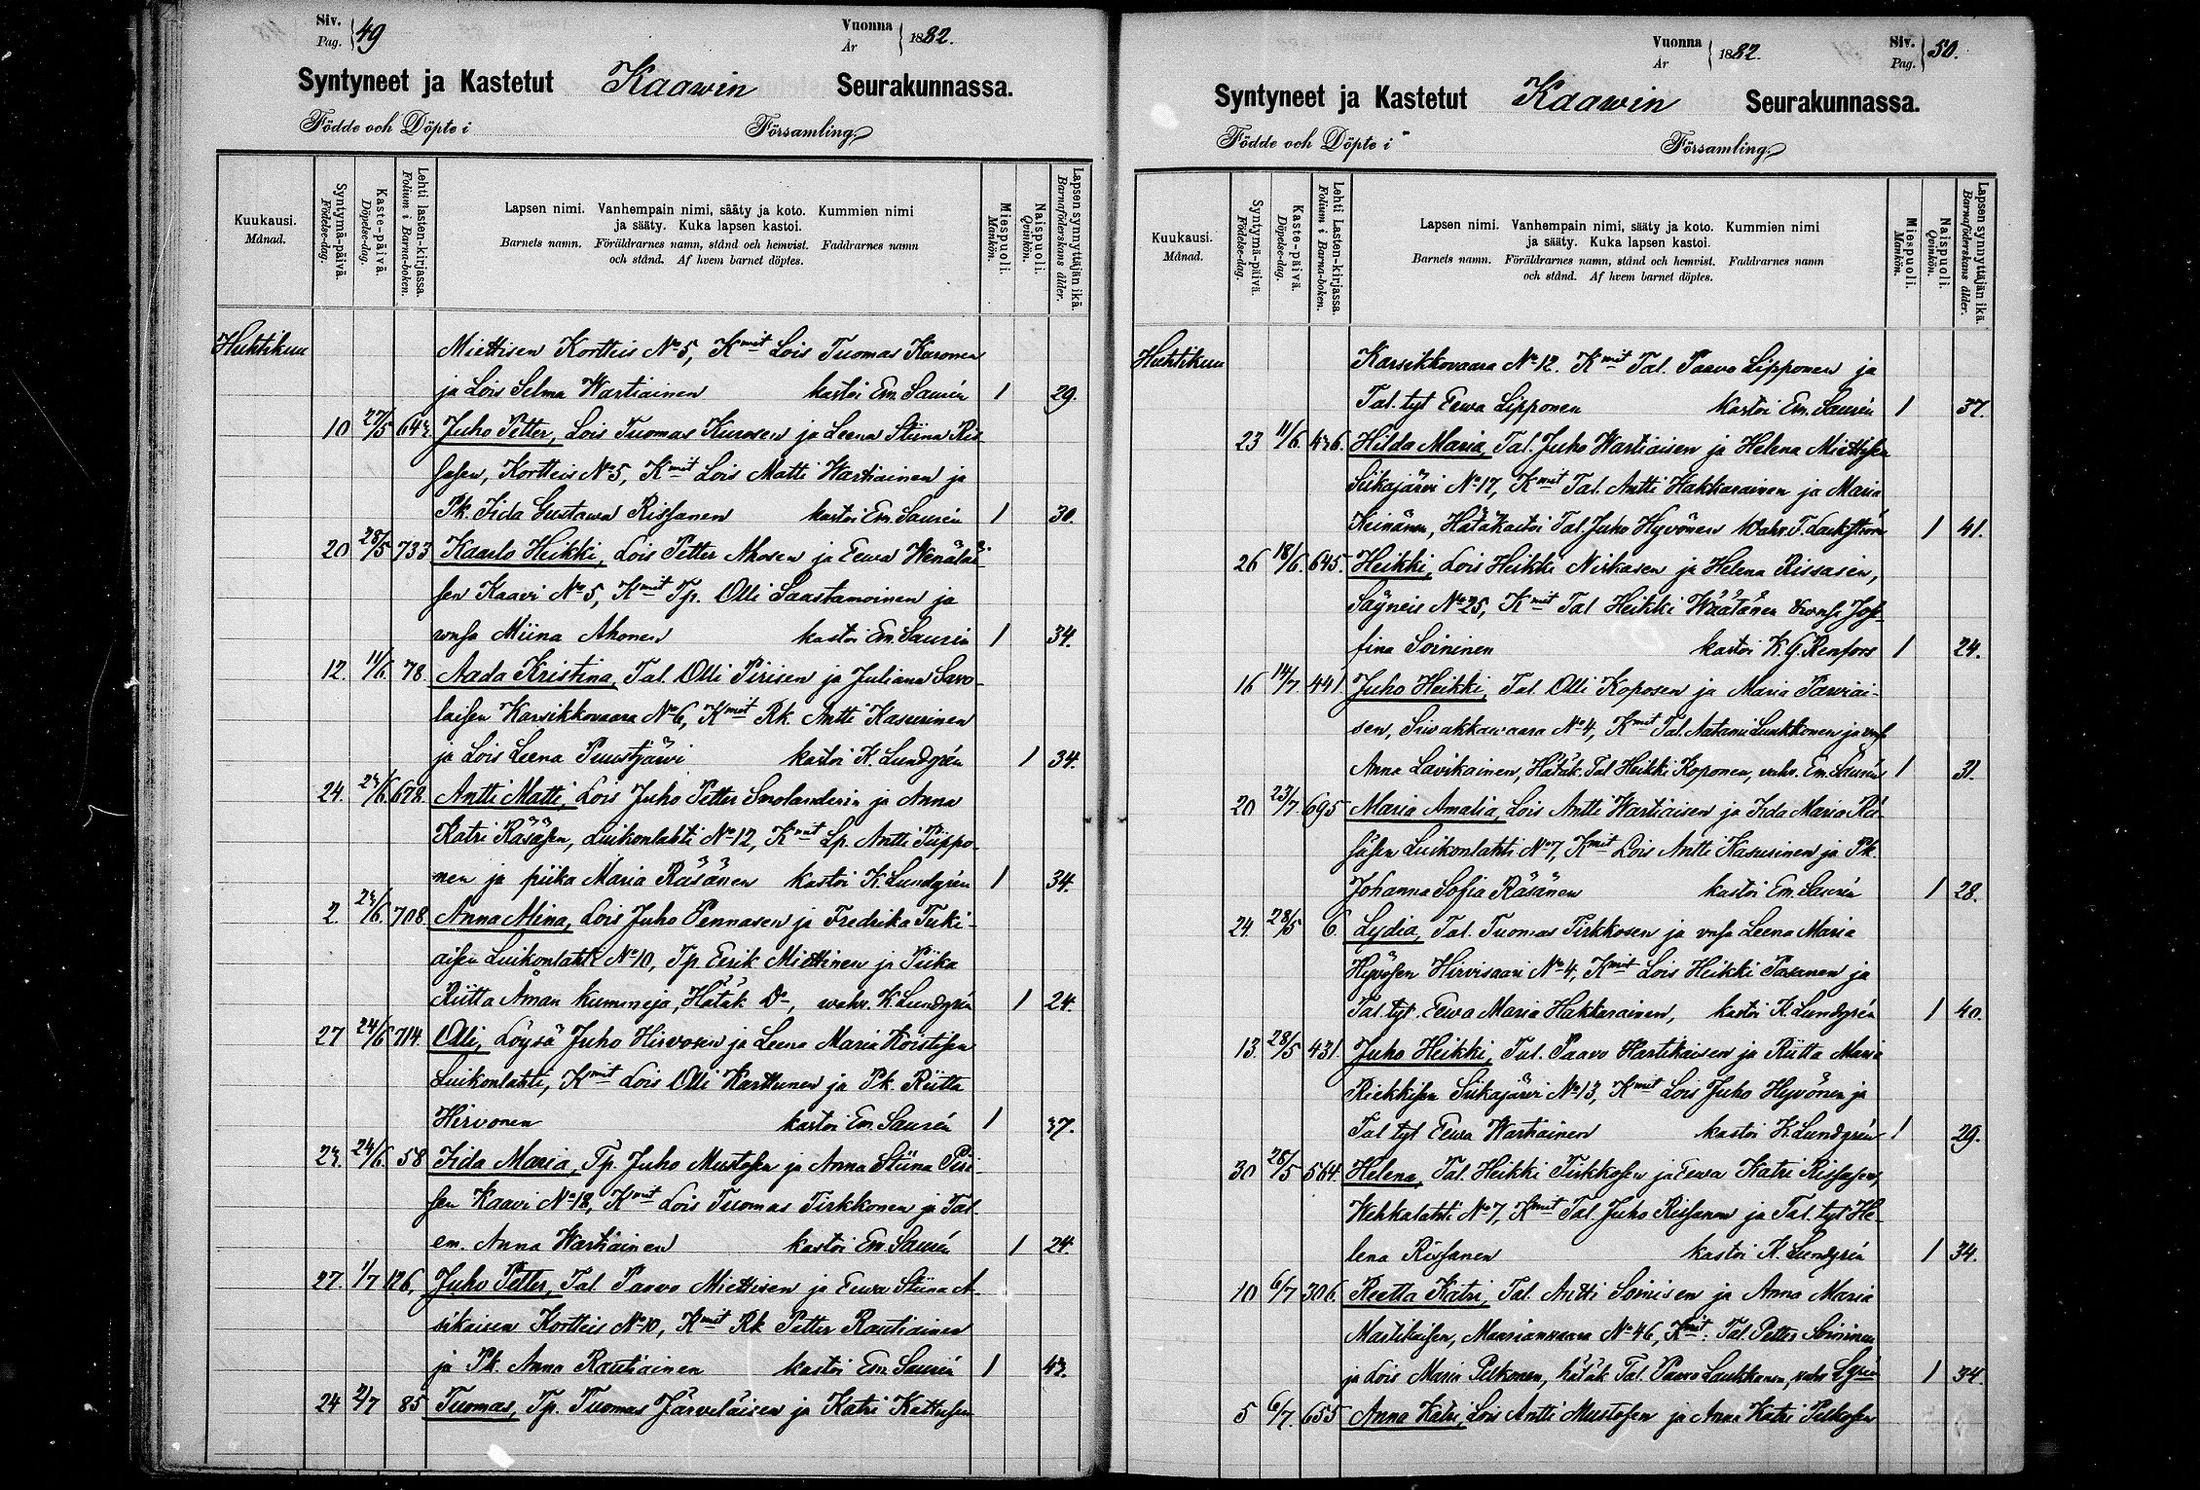 Siv. Pag. 49
Vuonna År 1882.
Syntyneet ja Kastetut Kaawin Seurakunnassa.
Födde och Döpte i Församling
Kuukausi. Månad.
Syntymä-päivä. Födelse-dag.
Kaste-päivä. Döpelse-dag.
Lehti lasten-kirjassa. Folium i Barna-boken.
Lapsen nimi. Vanhempain nimi, sääty ja koto. Kummien nimi
ja sääty. Kuka lapsen kastoi.
Barnets namn. Föräldrarnes namn, stånd och hemvist. Faddrarnes namn
och stånd. Af hvem barnet döptes.
Miespuoli. Mankön.
Naispuoli. Qvinkön.
Lapsen synnyttäjän ikä. Barnaföderskans ålder.
Huhtikuu Miettisen Kortteis No 5, Kmit Lois Tuomas Karonen
ja Lois Selma Wartiainen kastoi Em. Saurén 1 29.
10 27/5 642 Juho Petter, Lois Tuomas Kurosen ja Leena Stiina Ris-
sasen, Kortteis No 5, Kmit Lois Matti Wartiainen ja
Pk. Iida Gustawa Rissanen kastoi Em. Saurén 1 30.
20 28/5 733 Kaarlo Heikki, Lois Petter Ahosen ja Eewa Wenäläi-
sen Kaavi No 5, Kmit Tp. Olli Saastamoinen ja
wnsa Miina Ahonen kastoi Em. Saurén 1 34.
12. 11/6. 78. Aada Kristina, Tal. Olli Pirisen ja Juliana Savo-
laisen Karsikkovaara No 6, Kmit Rk. Antti Kasurinen
ja Lois Leena Puustjärvi kastoi K. Lundgrén 1 34.
24. 24/6. 672. Antti Matti, Lois Juho Petter Smolanderin ja Anna
Katri Räsäsen, Luikonlahti No 12, Kmit Lp. Antti Piippo-
nen ja piika Maria Räsänen kastoi K. Lundgrén 1 34.
2. 24/6. 708. Anna Miina, Lois Juho Pennasen ja Fredrika Tuki-
aisen Luikonlahti No 10, Tp. Eerik Miettinen ja Piika
Riitta Åman kummeja, Hätäk Do, wahv. K. Lundgrén 1 24.
27 24/6 714. Olli, Löysä Juho Hirvosen ja Leena Maria Koistisen
Luikonlahti, Kmit Lois Olli Karttunen ja Pk. Riitta
Hirvonen kastoi Em. Saurén 1 37.
24/6. 58 Iida Maria, Tp. Juho Mustosen ja Anna Stiina Piri-
sen Kaavi No 18, Kmit Lois Tuomas Tirkkonen ja Tal.
em. Anna Wartiainen kastoi Em. Saurén 1 24.
27. 1/7 126, Juho Petter, Tal. Paavo Miettisen ja Eewa Stiina A-
sikaisen Kortteis No 10, Kmit Rk Petter Rautiainen
ja Pk. Anna Rautiainen kastoi Em. Saurén 1
24 2/7 85 Tuomas, Tp. Tuomas Järveläisen ja Katri Kettusen
Vuonna År 1882.
Siv. Pag. 50.
Syntyneet ja Kastetut Kaawin Seurakunnassa.
Födde och Döpte i Församling
Kuukausi. Månad.
Syntymä-päivä. Födelse-dag.
Kaste-päivä. Döpelse-dag.
Lehti Lasten-kirjassa. Folium i Barna-boken.
Lapsen nimi. Vanhempain nimi, sääty ja koto. Kummien nimi
ja sääty. Kuka lapsen kastoi.
Barnets namn. Föräldrarnes namn, stånd och hemvist. Faddrarnes namn
och stånd. Af hvem barnet döptes.
Miespuoli. Mankön.
Naispuoli. Qvinkön.
Lapsen synnyttäjän ikä. Barnaföderskans ålder.
Huhtikuu Karsikkovaara No 12. Kmit Tal. Paavo Lipponen ja
Tal. tyt Eewa Lipponen kastoi Em. Saurén 1 37.
23 11/6. 426. Hilda Maria, Tal. Juho Wartiaisen ja Helena Miettisen
Siikajärvi No 17, Kmit Tal. Antti Hakkarainen ja Maria
Keinänen, Hätäkastoi Tal. Juho Hyvönen Wahv. 1 41.
26 18/6. 645. Heikki, Lois Heikki Niskasen ja Helena Rissasen,
Säyneis No 25, Kmit Tal Heikki Wäätänen wnsa Jose-
fina Soininen kastoi K. G. Renfors 1 24.
16 14/7 441 Juho Heikki, Tal Olli Koposen ja Maria Parviai-
sen, Siwakkawaara No 4, Kmit Tal. Aatami Luukkonen ja wnsa
Anna Lavikainen, Hätäk. Tal Heikki Koponen, wahv. Em. Saurén 1 31.
20 23/7. 695 Maria Amalia, Lois Antti Wartiaisen ja Iida Maria Rä-
säsen Luikonlahti No 7, Kmit Lois Antti Kasurinen ja Pk.
Johanna Sofia Räsänen kastoi Em. Saurén 1 28.
24. 28/5 6. Lydia, Tal. Tuomas Tirkkosen ja vnsa Leena Maria
Hyvösen Hirvisaari No 4, Kmit Lois Heikki Pasanen ja
Tal. tyt. Eewa Maria Hakkarainen, kastoi K. Lundgrén 1 40.
13. 28/5 431. Juho Heikki, Tal. Paavo Hartikaisen ja Riitta Maria
Riekkisen Siikajärvi No 13, Kmit Lois Juho Hyvönen ja
Tal tyt Eewa Wartiainen kastoi K. Lundgrén 1 29.
30 28/5 564. Helena, Tal. Heikki Tirkkosen ja Eewa Katri Rissasen,
Wehkalahti No 7, Kmit Tal. Juho Rissanen ja Tal. tyt He-
lena Rissanen kastoi K. Lundgrén 1 34.
10 6/7 306. Reetta Katri, Tal. Antti Soinisen ja Anna Maria
Martikaisen, Maarianvaara No 46, Kmit: Tal. Petter Soininen
ja Lois Maria Pelkonen, hätäk Tal. Paavo Laukkanen, wahv Lgrén 1 34.
5 6/7. 655 Anna Katri, Lois Antti Mustosen ja Anna Katri Pelkosen